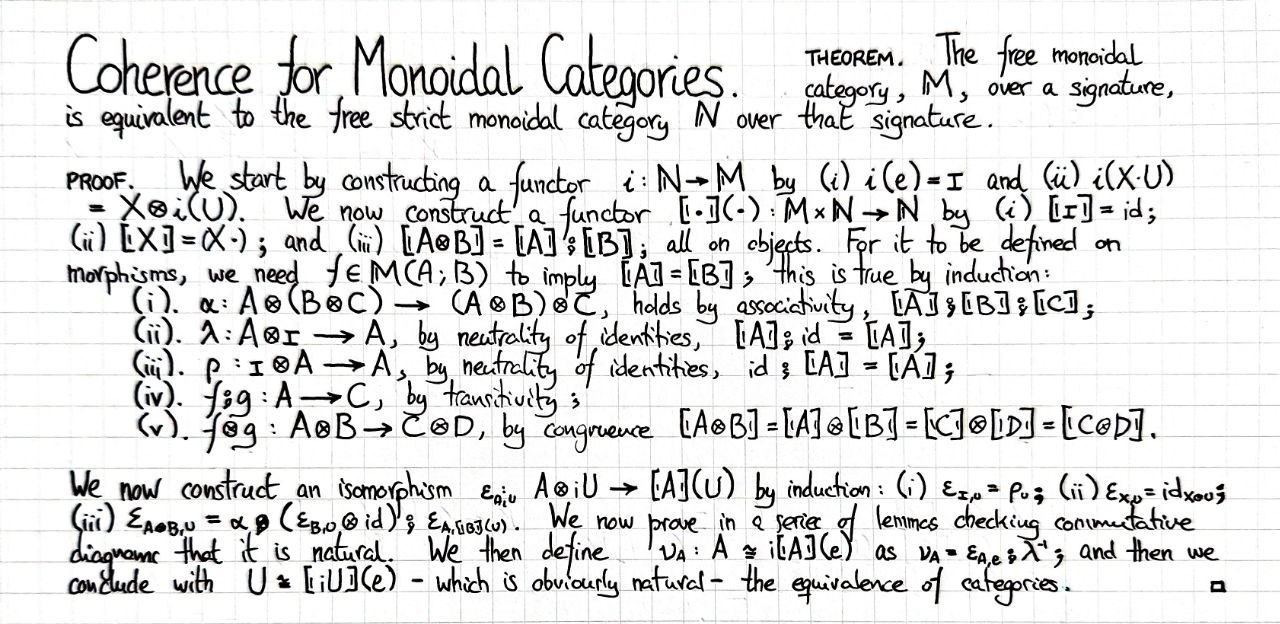 Coherence for Monoidal Categories. THEOREM. The free monoidal
category, M, over a signature,
is equivalent to the free strict monoidal category ℕ over that signature.
PROOF. We start by constructing a functor i : ℕ → M by (i) i(e) = I and (ii) i(X·U)
= X⊗i(U). We now construct a functor ⟦·⟧(·) : M × ℕ → ℕ by (i) ⟦I⟧ = id;
(ii) ⟦X⟧ = (X·); and (iii) ⟦A⊗B⟧ = ⟦A⟧⨾⟦B⟧; all on objects. For it to be defined on
morphisms, we need f ∈ M(A; B) to imply ⟦A⟧ = ⟦B⟧; this is true by induction:
(i). α : A⊗(B⊗C) → (A⊗B)⊗C, holds by associativity, ⟦A⟧⨾⟦B⟧⨾⟦C⟧;
(ii). λ : A⊗I → A, by neutrality of identities, ⟦A⟧⨾id = ⟦A⟧;
(iii). ρ : I⊗A → A, by neutrality of identities, id⨾⟦A⟧ = ⟦A⟧;
(iv). f⨾g : A → C, by transitivity;
(v). f⊗g : A⊗B → C⊗D, by congruence ⟦A⊗B⟧ = ⟦A⟧⊗⟦B⟧ = ⟦C⟧⊗⟦D⟧ = ⟦C⊗D⟧.
We now construct an isomorphism ε A⊗iU → ⟦A⟧(U) by induction: (i) ε_{I,U} = ρ_U; (ii) ε_{X,U} = id_{X⊗U};
(iii) ε_{A⊗B,U} = α⨾(ε_{B,U}⊗id)⨾ε_{A,⟦B⟧(U)}. We now prove in a series of lemmas checking commutative
diagrams that it is natural. We then define ν_A : A ≅ i⟦A⟧(e) as ν_A = ε_{A,e}⨾λ⁻¹; and then we
conclude with U ≅ ⟦iU⟧(e) – which is obviously natural – the equivalence of categories. □